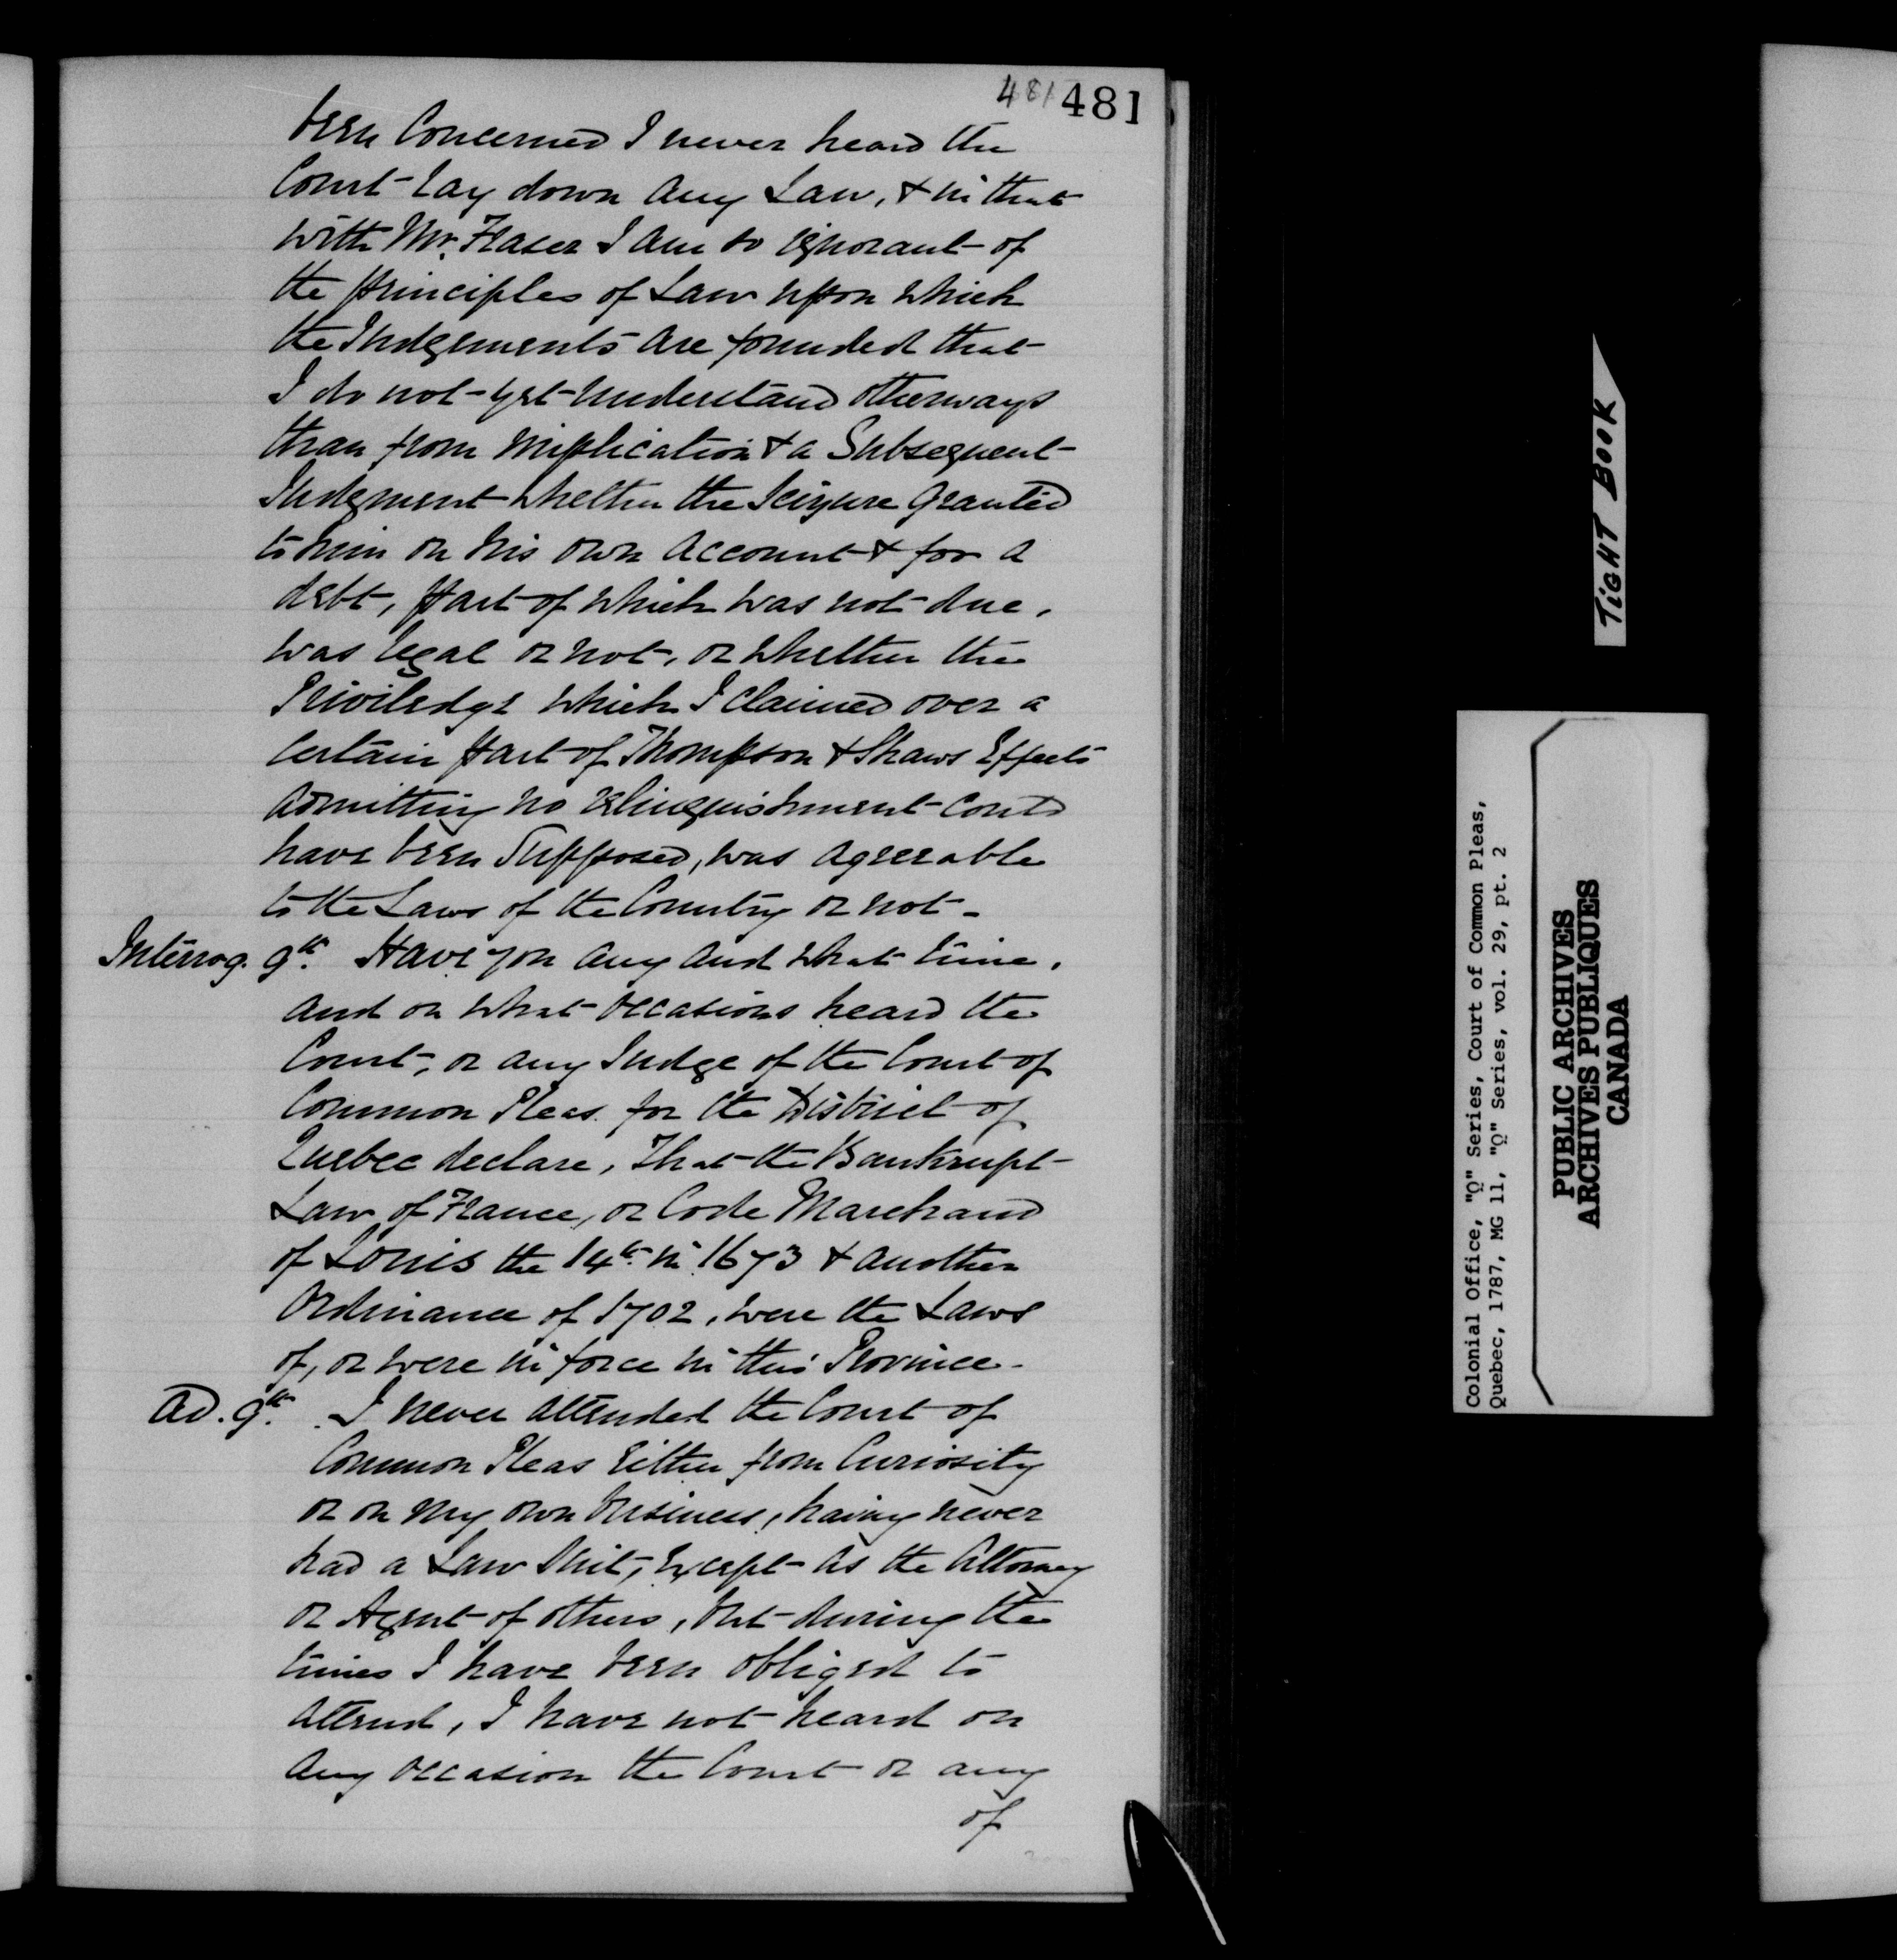 481 481
been Concerned I never heard the
Court lay down any Law, & in that
with Mr. Fraser I am so ignorant of
the principles of Law upon which
the Judgements are founded that
I do not yet understand otherways
than from implication & a Subsequent
Judgment whether the Seizure granted
to him on his own account & for a
debt, part of which was not due,
was legal or not, or whether the
Priviledge which I claimed over a
certain part of Thompson & Shaws Effects
admitting no relinquishment could
have been Supposed, was agreeable
to the Laws of the Country or not -
Interrog. 9th. Have you any and what time,
and on what occasions heard the
Court, or any Judge of the Court of
Common Pleas for the District of
Quebec declare, That the Bankrupt
Law of France, or Code Marchand
of Louis the 14th. in 1673 & another
Ordinance of 1702, were the Laws
of, or were in force in this Province -
Ad. 9th. I never attended the Court of
Common Pleas Either from Curiosity
or on my own business, having never
had a Law Suit, Except as the Attorney
or Agent of others, but during the
times I have been obliged to
attend, I have not heard on
any occasion the Court or any
of
TIGHT BOOK
Colonial Office, "Q" Series, Court of Common Pleas,
Quebec, 1787, MG 11, "Q" Series, vol. 29, pt. 2
PUBLIC ARCHIVES
ARCHIVES PUBLIQUES
CANADA